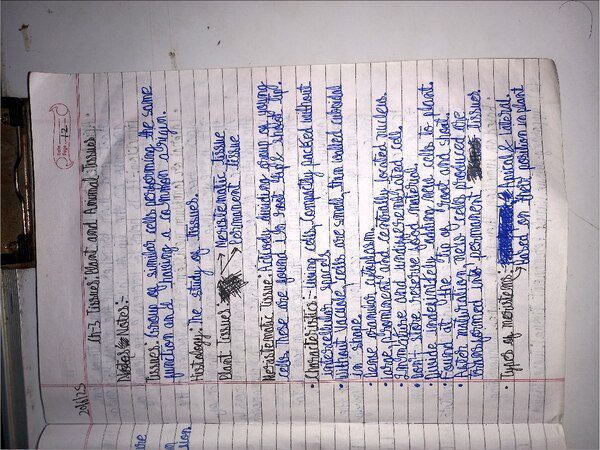 Date
Page 12
20/6/25
Ch-3 Tissues: Plant and Animal Tissues
Notes:-
Tissues: Group of similar cells performing the same
function and having a common origin.
Histology: The study of tissues.
Plant Tissues → Meristematic Tissue
→ Permanent Tissue
Meristematic Tissue: Actively dividing group of young
cells. These are found in root tip & shoot tip.
• Characteristics:- Living cells, compactly packed without
intercellular spaces
• Without vacuole, cells are small, thin walled cuboidal
in shape.
• Dense granular cytoplasm.
• Large Prominent and centrally located nucleus.
• Immature and undifferentiated cell.
• Don't store reserve food material.
• Divide indefinitely adding new cells to plant.
• Found at the tip of root and shoot.
• After maturation new cells produced are
transformed into permanent tissues.
• Types of meristems: Apical & lateral
→ based on their position in plant